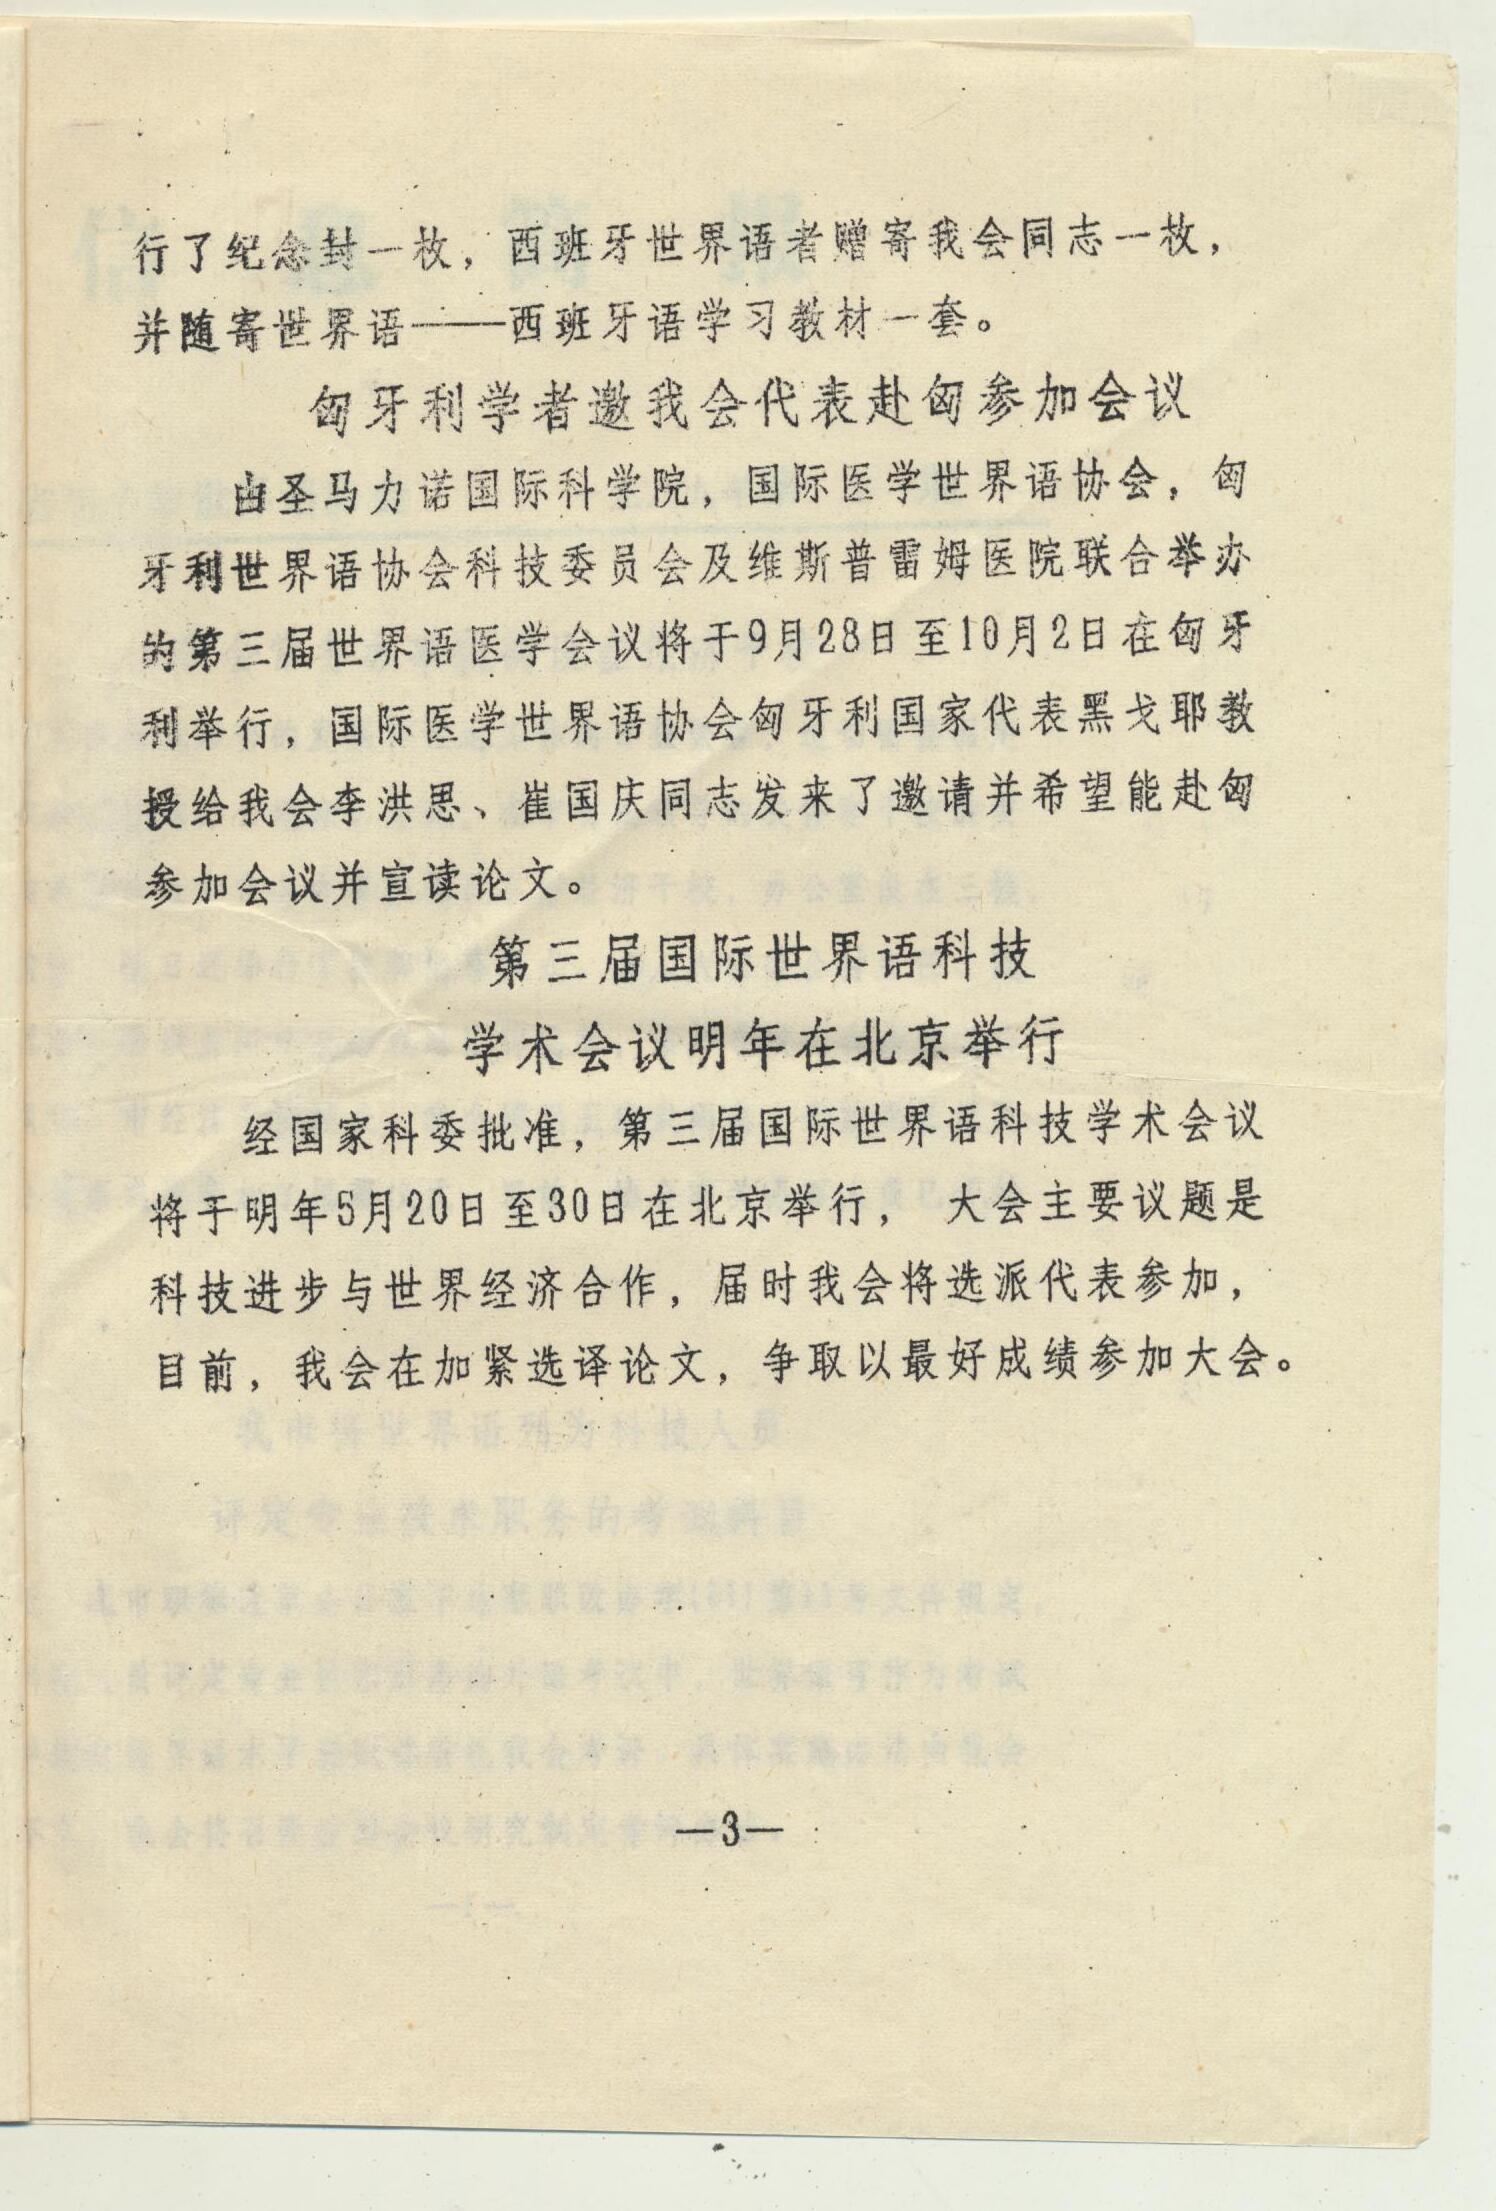 行了纪念封一枚，西班牙世界语者赠寄我会同志一枚，
并随寄世界语——西班牙语学习教材一套。
匈牙利学者邀我会代表赴匈参加会议
由圣马力诺国际科学院，国际医学世界语协会，匈
牙利世界语协会科技委员会及维斯普雷姆医院联合举办
的第三届世界语医学会议将于9月28日至10月2日在匈牙
利举行，国际医学世界语协会匈牙利国家代表黑戈耶教
授给我会李洪思、崔国庆同志发来了邀请并希望能赴匈
参加会议并宣读论文。
第三届国际世界语科技
学术会议明年在北京举行
经国家科委批准，第三届国际世界语科技学术会议
将于明年5月20日至30日在北京举行， 大会主要议题是
科技进步与世界经济合作，届时我会将选派代表参加，
目前，我会在加紧选译论文，争取以最好成绩参加大会。
—3—